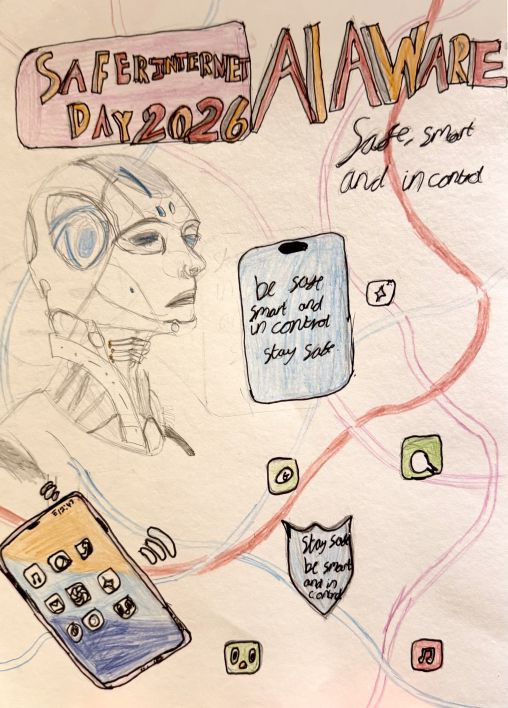 SAFER INTERNET
DAY 2026
AI AWARE
Safe, smart
and in control
be safe
smart and
in control
stay safe
Stay safe
be smart
and in
control